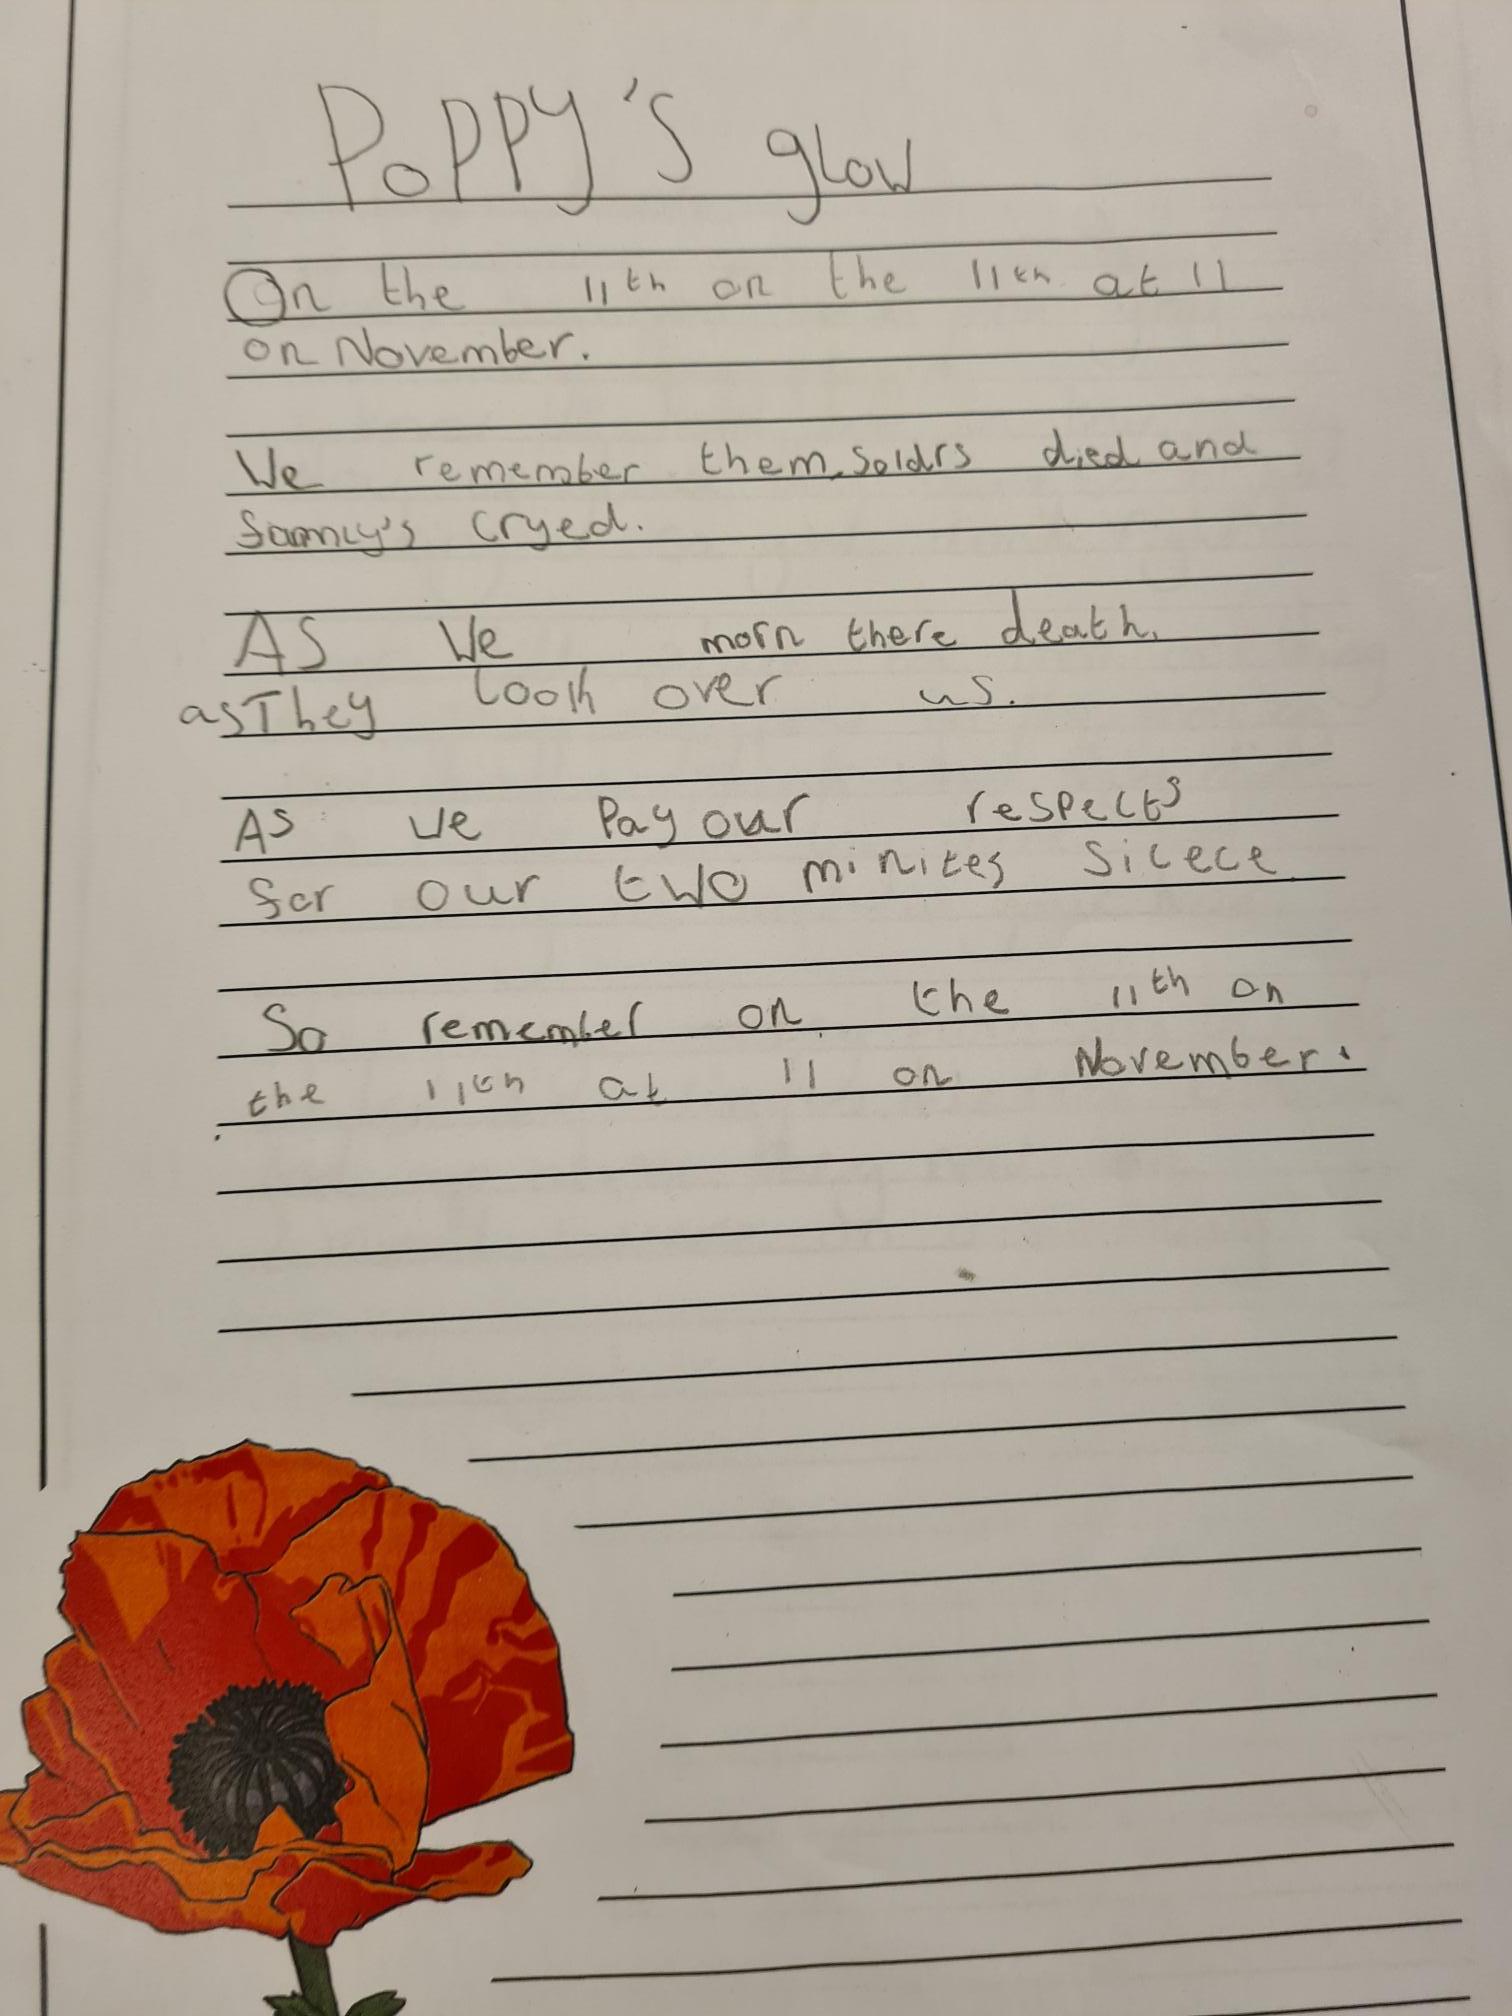 PoPPY's glow
On the 11th on the 11th at 11
on November.
We remember them. Soldrs died and
famly's cryed.
AS We morn there death.
as They look over us.
As we Pay our respects
for our two minites silece
So remember on the 11th on
the 11th at 11 on November.